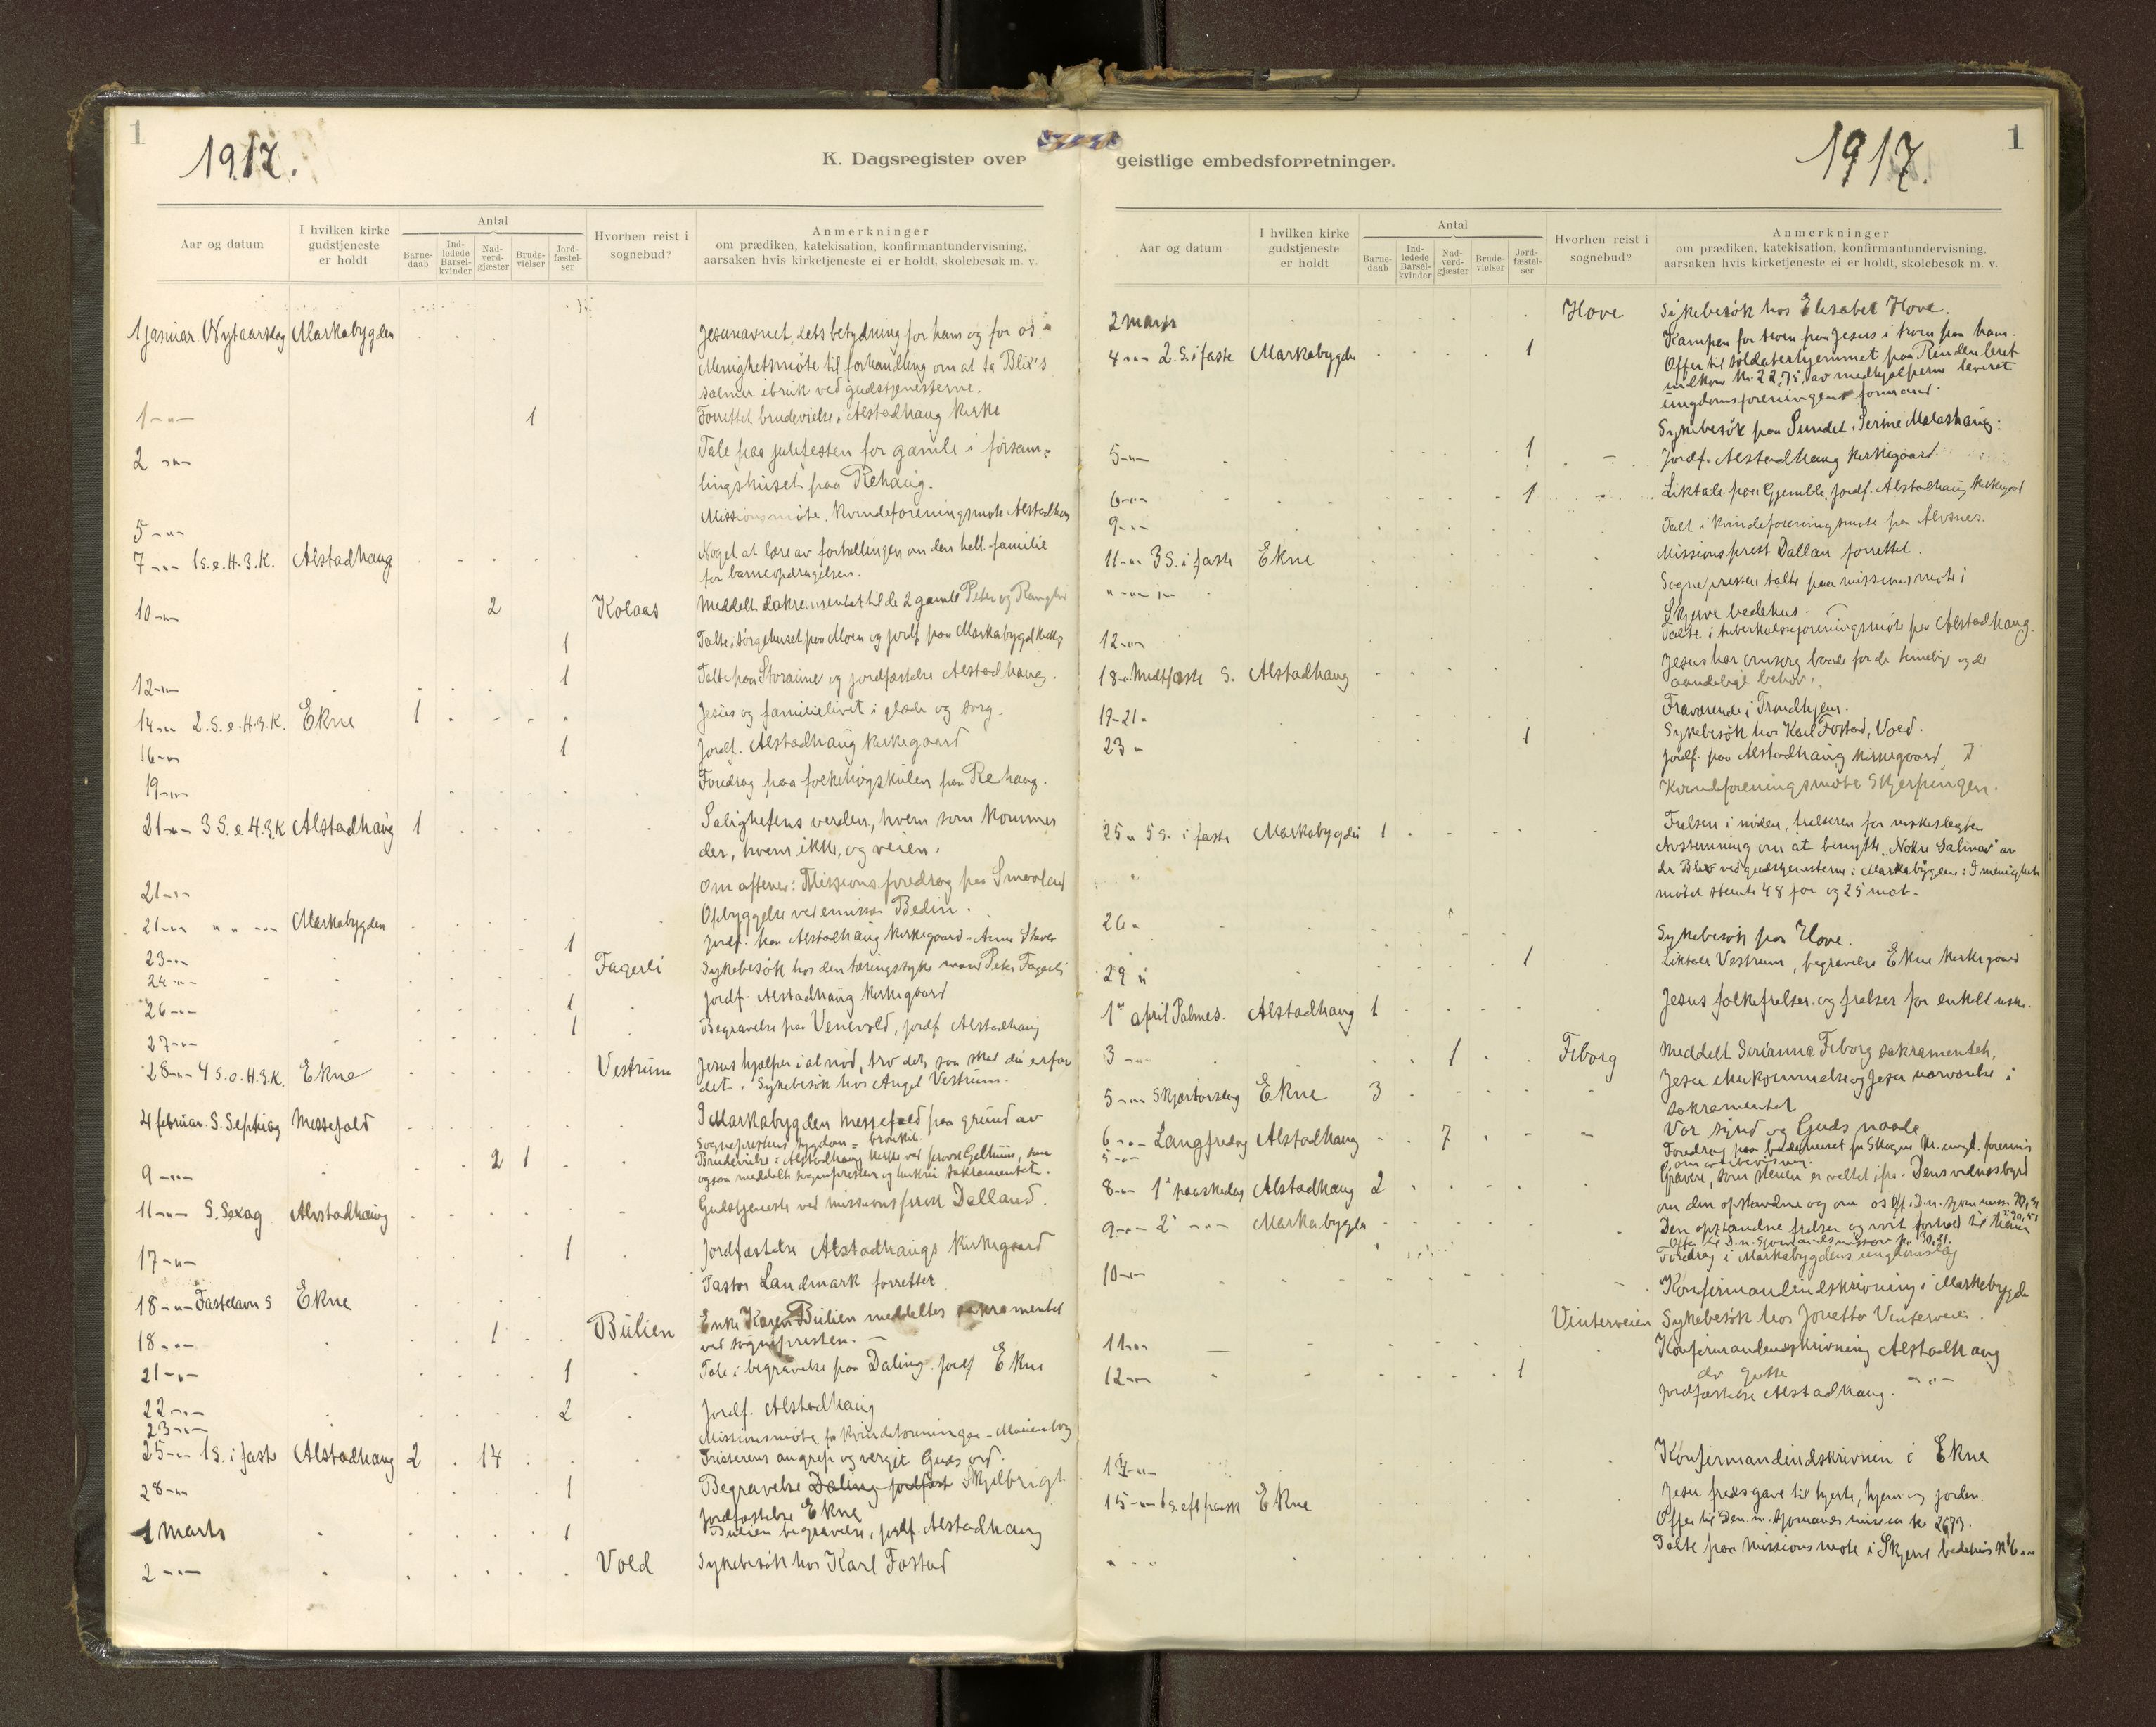 1
1917.
K. Dagsregister over
Aar og datum
I hvilken kirke gudstjeneste er holdt
Antal
Barne-daab
Ind-ledede Barsel-kvinder
Nad-verd-gjæster
Brude-vielser
Jord-fæstel-ser
Hvorhen reist i sognebud?
Anmerkninger
om prædiken, katekisation, konfirmantundervisning,
aarsaken hvis kirketjeneste ei er holdt, skolebesøk m. v.
1 januar Nytaarsdag Markabygden Jesunavnet, dets betydning for ham og for os.
Menighetsmøte til forhandling om at ta Blix's
salmer i bruk ved gudstjenesterne.
1 -"- 1 Forrettet brudevielse i Alstadhaug kirke
2 -"- Tale paa julefesten for gamle i forsam-
lingshuset paa Rehaug.
5 -"- Missionsmøte. Kvindeforeningsmøte Alstadhaug
7 -"- 1 s. e. H. 3. K. Alstadhaug Noget at lære av fortællingen om den hell. familie
for barneopdragelsen.
10 -"- 2 Kolaas Meddelt sakramentet til de 2 gamle Peter og
1 Talte i sørgehuset paa Moen og jordf. paa Markabygd
12 -"- 1 Talte paa Storaune og jordfæstelse Alstadhaug.
14 -"- 2. S. e. H. 3. K. Ekne 1 Jesus og familielivet i glæde og sorg.
16 -"- 1 Jordf. Alstadhaug kirkegaard
19 -"- Foredrag paa folkehøgskulen paa Rehaug.
21 -"- 3 S. e. H. 3. K Alstadhaug 1 Salighetens verden, hvem som kommer
der, hvem ikke, og veien.
21 -"- Om aftenen: Missionsforedrag paa
21 -"- " " -"- Markabygden Opbyggelse ved emissær Bedin.
23 -"- 1 Jordf. paa Alstadhaug kirkegaard - Anne
24 -"- Fagerli Sykebesøk hos den tæringssyke mand Peter Fagerli
26 -"- 1 Jordf. Alstadhaug kirkegaard
27 -"- 1 Begravelse paa Venevold, jordf. Alstadhaug
28 -"- 4 S. e. H. 3. K. Ekne Vestrum Jesus hjælper i al nød, tro det, saa skal du erfare
det. Sykebesøk hos Angel Vestrum.
4 februar. S. Septuag Messefald I Markabygden messefald paa grund av
sogneprestens sygdom = bronkit.
9 -"- 2 1 Brudevielse i Alstadhaug kirke ved provst
ogsaa meddelte sognepresten og hustru sakramentet.
11 -"- S. Sexag Alstadhaug Gudstjeneste ved missionsprest Dalland.
17 -"- 1 Jordfæstelse Alstadhaugs kirkegaard
18 -"- Fastelavns S Ekne Pastor Landmark forretter
18 -"- 1 Bulien Enke Karen Bulien meddeltes sakramentet
ved sognepresten. —
21 -"- 1 Tale i begravelse paa Daling. jordf Ekne
22 -"- 2 Jordf. Alstadhaug
23 -"- Missionsmøte for kvindeforeningen - Marienborg
25 -"- 1 S. i faste Alstadhaug 2 14 Fristerens angrep og verget Guds ord.
28 -"- 1 Begravelse Daling jordfæst Skjelbrigt
Jordfæstelse Ekne
1 Marts 1 Bulien begravelse, jordf. Alstadhaug
2 -"- Vold Sykebesøk hos Karl Fostad
geistlige embedsforretninger.
1917.
1
Aar og datum
I hvilken kirke gudstjeneste er holdt
Antal
Barne-daab
Ind-ledede Barsel-kvinder
Nad-verd-gjæster
Brude-vielser
Jord-fæstel-ser
Hvorhen reist i sognebud?
Anmerkninger
om prædiken, katekisation, konfirmantundervisning,
aarsaken hvis kirketjeneste ei er holdt, skolebesøk m. v.
2 marts Hove Sykebesøk hos Elisabet Hove.
4 -"- 2. S. i faste Markabygden 1 Kampen for troen paa Jesus i troen paa ham.
Offer til soldaterhjemmet paa Rindenleret
indkom kr. 22,75, av medhjælperne leveret
ungdomsforeningens formand.
Sykebesøk paa Sundet. Serine
5 -"- 1 Jordf. Alstadhaug kirkegaard
6 -"- 1 Liktale paa Gjemble, jordf. Alstadhaug kirkegaard
9 -"- Talt i kvindeforeningsmøte paa Alvsnes.
11 -"- 3 S. i faste Ekne Missionsprest Dalland forrettet.
" -"- Sognepresten talte paa missionsmøte i
Skjerve bedehus.
12 -"- Talte i tuberkuloseforeningsmøte paa Alstadhaug.
18 " Midtfaste S. Alstadhaug Jesus har omsorg baade for de timelige og de
aandelige behov.
19-21 " Fraværende i Trondhjem.
23 " 1 Sykebesøk hos Karl Fostad, Vold.
Jordf. paa Alstadhaug kirkegaard
Kvindeforeningsmøte Skjerpingen.
25 " 5 S. i faste Markabygden 1 Frelsen i nøden, frelseren for
Avstemning om at benytte "Nokre Salmar" av
dr Blix ved gudstjenesterne i Markabygden: I menighets
møtet stemte 48 for og 25 mot.
26 " Sykebesøk paa Hove.
29 " 1 Liktale Vestrum, begravelse Ekne kirkegaard
1ste april Palmes. Alstadhaug 1 Jesus folkefrelser og frelser for enkelt
3 -"- 1 Fiborg Meddelt Serianna Fiborg sakramentet.
5 -"- Skjærtorsdag Ekne 3 Jesu ihukommelse og Jesu nærværelse i
sakramentet
6 -"- Langfredag Alstadhaug 7 Vor synd og Guds naade
5 -"- Foredrag paa bedehuset for Skogns kr. ungd. forening
8 -"- 1ste paaskedag Alstadhaug 2 Graven, som stenen er væltet ifra. Dens vidnesbyrd
om den opstandne og om os
9 -"- 2 -"- Markabygden Den opstandne frelser og vort forhold til ham
Offer til D. n. Sjømandsmission kr. 30,21.
Foredrag i Markabygdens ungdomslag
10 -"- Konfirmandindskrivning i Markabygden
Vinterveien Sykebesøk hos Jonetta Vinterveien.
11 -"- Konfirmandindskrivning Alstadhaug
12 -"- 1 do Gutte -"-
Jordfæstelse Alstadhaug.
14 -"- Konfirmandindskrivnin i Ekne
15 -"- 1 s. eft paask Ekne Jesu fredsgave til hjerte, hjem og jorden.
Offer til Den. n. sjømands mission kr 26,73.
" " " Talte paa missionsmøte i Skjerve bedehus